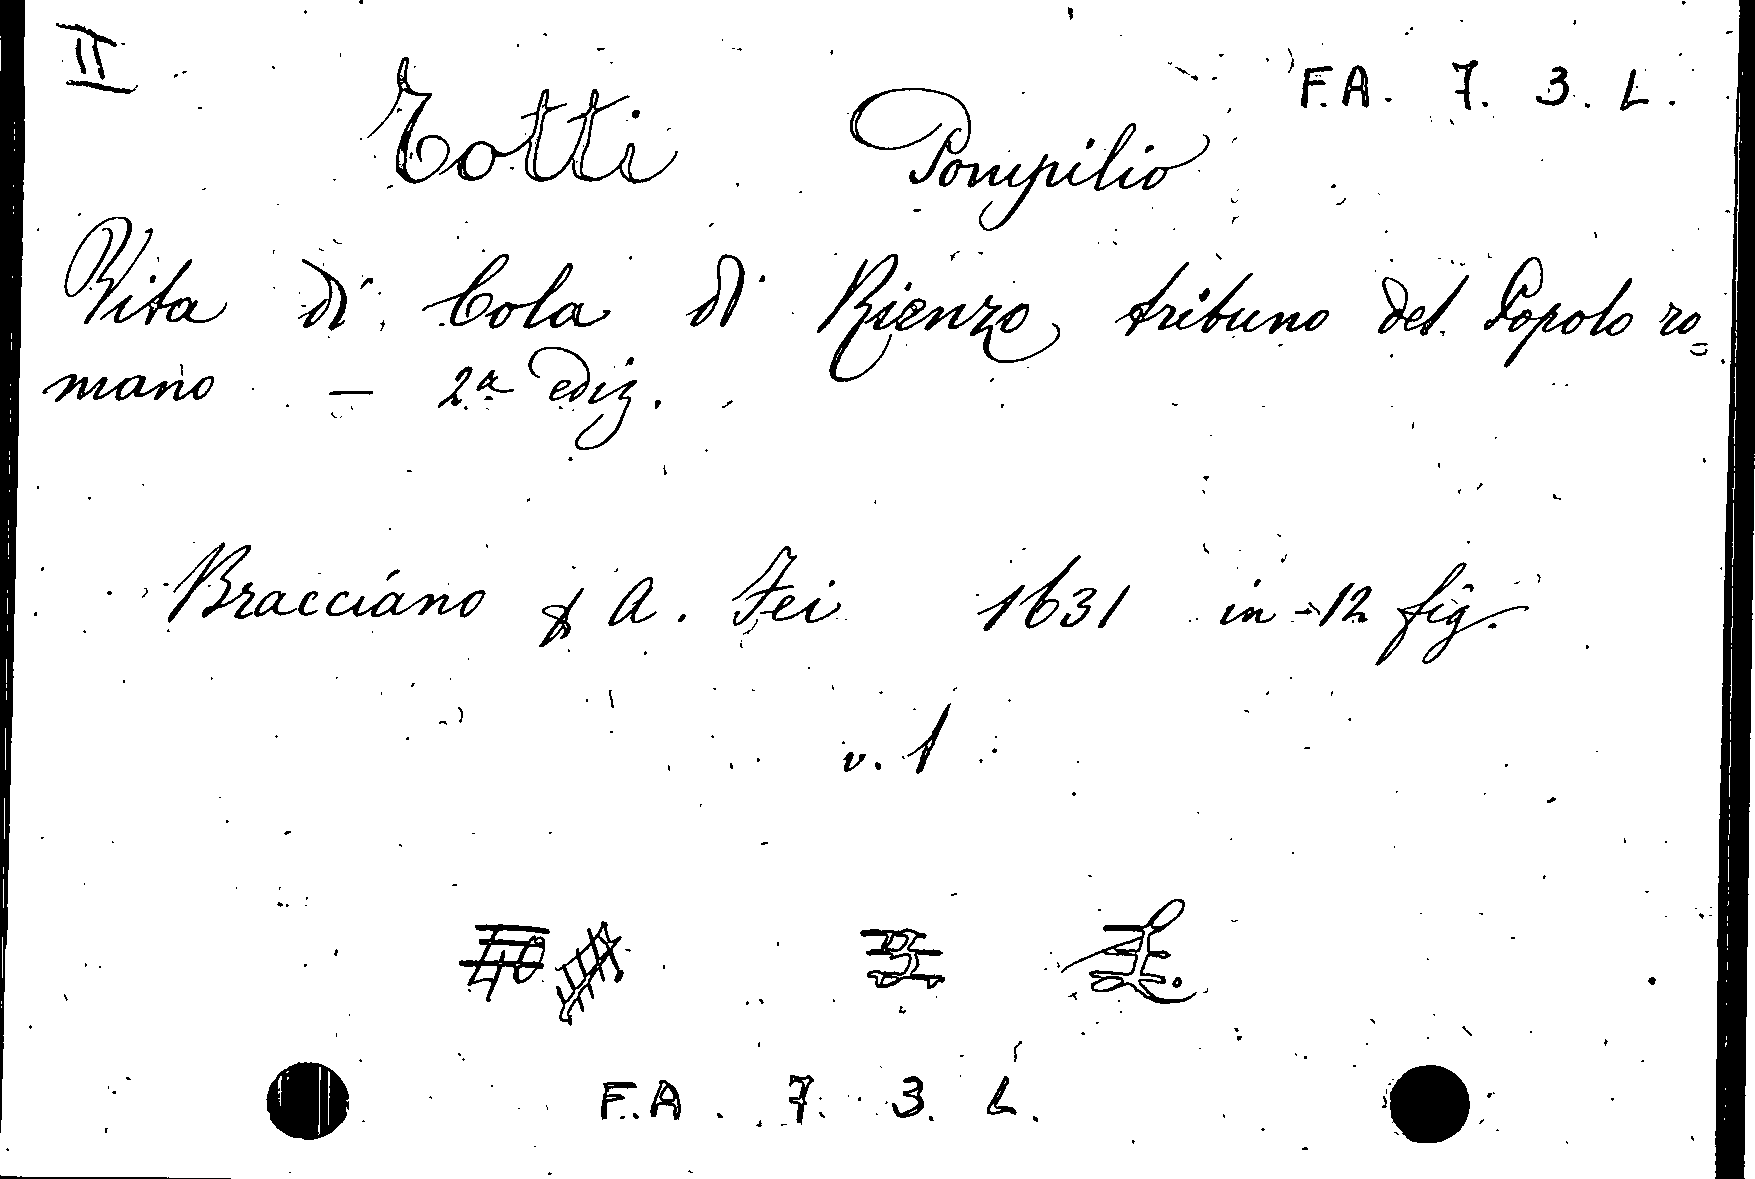 II
F.A. 7. 3. L.
Totti Pompilio
Vita di Cola di Rienzo, tribuno del Popolo ro=
mano — 2a ediz.
Bracciano A. Fei 1631 in-12 fig.
v. 1
3 L.
F.A. 7. 3. L.